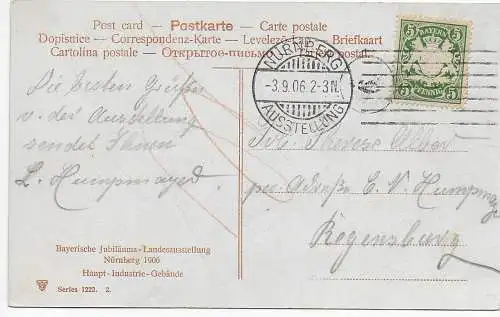 Post card — Postkarte — Carte postale
Dopisnice — Correspondenz-Karte — Levelező-Lap — Briefkaart
Cartolina postale — Открытое письмо
BAYERN
5 5
5 PFENNIG 5
NÜRNBERG
-3.9.06. 2-3N.
AUSSTELLUNG
Die besten Grüße
v. der Ausstellung
sendet Ihnen
L. Humpmayer
Frl. Therese
per Adresse E. V.
Regensburg
Bayerische Jubiläums-Landesausstellung
Nürnberg 1906
Haupt-Industrie-Gebäude
Series 1222. 2.